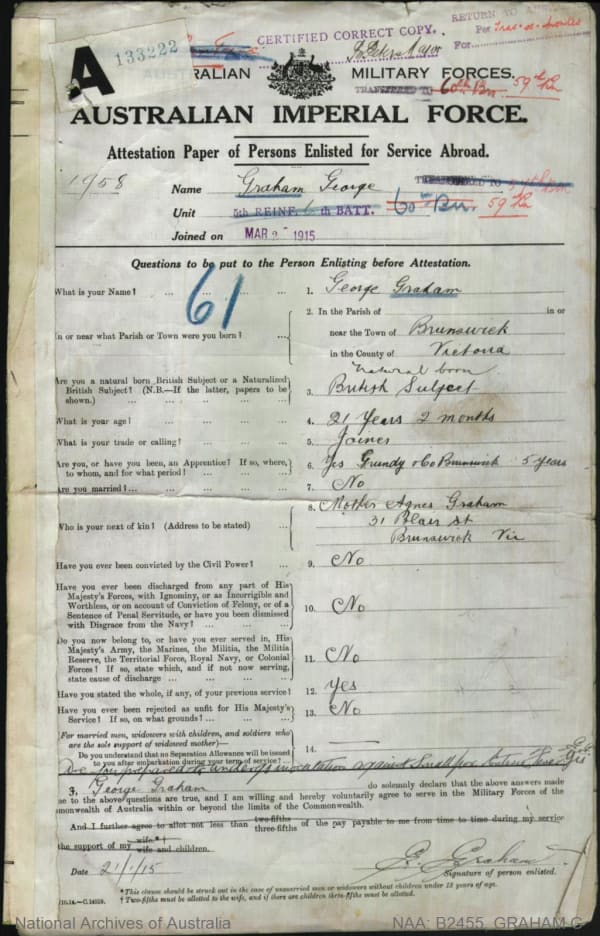 133222
CERTIFIED CORRECT COPY.
RETURN TO
For
A
AUSTRALIAN MILITARY FORCES.
TRANSFERRED TO 60th Bn. 59th Bn
AUSTRALIAN IMPERIAL FORCE.
Attestation Paper of Persons Enlisted for Service Abroad.
1958
Name Graham George
TRANSFERRED TO
Unit 5th REINF. 6th BATT. 60th Bn. 59 Bn
Joined on MAR 2 - 1915
Questions to be put to the Person Enlisting before Attestation.
61
What is your Name? ... ... ... ... 1. George Graham
In or near what Parish or Town were you born? ... 2. In the Parish of in or
near the Town of Brunswick
in the County of Victoria
Natural born
Are you a natural born British Subject or a Naturalized British Subject? (N.B.—If the latter, papers to be shown.) ... 3. British Subject
What is your age? ... ... ... ... 4. 21 Years 2 months
What is your trade or calling? ... ... ... 5. Joiner
Are you, or have you been, an Apprentice? If so, where, to whom, and for what period? ... 6. Yes Grundy & Co Brunswick 5 years
Are you married?... ... ... ... 7. No
Who is your next of kin? (Address to be stated) ... 8. Mother Agnes Graham
31 Blair St
Brunswick Vic
Have you ever been convicted by the Civil Power? ... 9. No
Have you ever been discharged from any part of His
Majesty's Forces, with Ignominy, or as Incorrigible and
Worthless, or on account of Conviction of Felony, or of a
Sentence of Penal Servitude, or have you been dismissed
with Disgrace from the Navy? ... ... 10. No
Do you now belong to, or have you ever served in, His
Majesty's Army, the Marines, the Militia, the Militia
Reserve, the Territorial Force, Royal Navy, or Colonial
Forces? If so, state which, and if not now serving,
state cause of discharge ... ... ... 11. No
Have you stated the whole, if any, of your previous service? 12. Yes
Have you ever been rejected as unfit for His Majesty's
Service? If so, on what grounds? ... ... 13. No
(For married men, widowers with children, and soldiers who
are the sole support of widowed mother)—
Do you understand that no Separation Allowance will be issued
to you after embarkation during your term of service? ... 14. —
Are you prepared to undergo inoculation against Small pox & Enteric Fever
I, George Graham do solemnly declare that the above answers made
me to the above questions are true, and I am willing and hereby voluntarily agree to serve in the Military Forces of the
Commonwealth of Australia within or beyond the limits of the Commonwealth.
And I further agree to allot not less than two-fifths three-fifths of the pay payable to me from time to time during my service
the support of my wife.*† wife and children.
Date 21/1/15 G. Graham
Signature of person enlisted.
*This clause should be struck out in the case of unmarried men or widowers without children under 18 years of age.
† Two-fifths must be allotted to the wife, and if there are children three-fifths must be allotted.
National Archives of Australia NAA: B2455, GRAHAM G